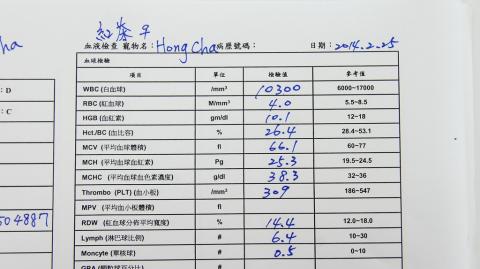 紅茶
血液檢查 寵物名: Hong Cha 病歷號碼: 日期: 2014.2.25
血球檢驗
項目 單位 檢驗值 參考值
WBC (白血球) /mm³ 10300 6000~17000
RBC (紅血球) M/mm³ 4.0 5.5~8.5
HGB (血紅素) gm/dl 10.1 12~18
Hct./BC (血比容) % 26.4 28.4~53.1
MCV (平均血球體積) fl 66.1 60~77
MCH (平均血球血紅素) Pg 25.3 19.5~24.5
MCHC (平均血球血色素濃度) g/dl 38.3 32~36
Thrombo (PLT) (血小板) /mm³ 309 186~547
MPV (平均血小板體積) fl
RDW (紅血球分佈平均寬度) % 14.4 12.0~18.0
Lymph (淋巴球比例) # 6.4 10~30
Moncyte (單核球) # 0.5 0~10
: D
: C
504887